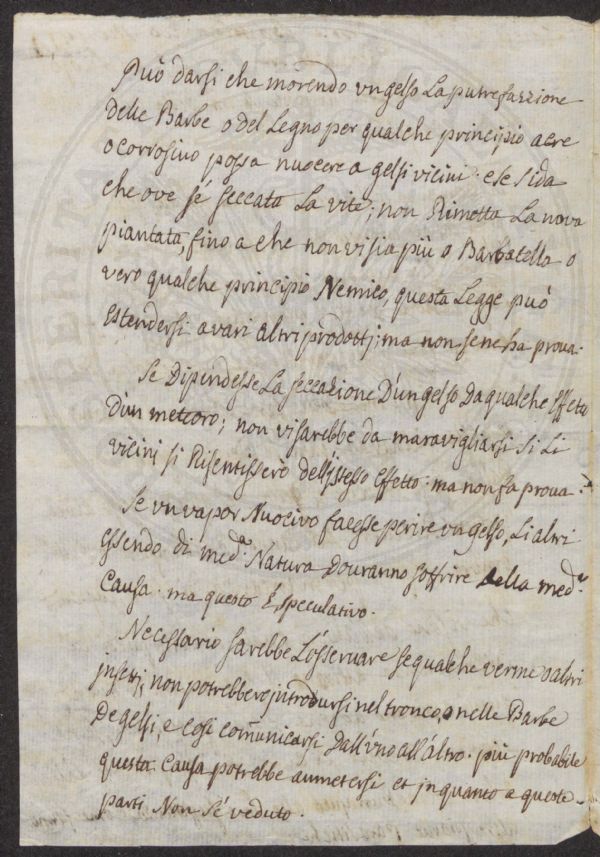 Può darsi che morendo vn gelso La putrefazzione
delle Barbe o del Legno per qualche principio acre
o corrosivo possa nuocere a gelsi vicini. e se si da
che ove sé seccata La vite; non Rimetta La nova
piantata, fino a che non vi sia più o Barbatella o
vero qualche principio Nemico, questa Legge può
estendersi a vari altri prodotti; ma non se ne ha prova.
Se Dipendesse La seccazione D'un gelso Da qualche Effetto
D'un meteoro; non vi sarebbe da maravigliarsi si Li
vicini si Risentissero dell'istesso Effetto: ma non fa prova.
Se vn vapor Nuocivo facesse perire vn gelso, Li altri
essendo di med.ª Natura Douranno soffrire della med.ª
Causa. ma questo È speculativo.
Necessario sarebbe L'osservare se qualche verme o altri
insetti, non potrebbero introdursi nel tronco, o nelle Barbe
De gelsi, e cosi comunicarsi Dall'uno all'altro. più probabile
questa Causa potrebbe aumetersi et in quanto a queste
parti Non sé veduto.